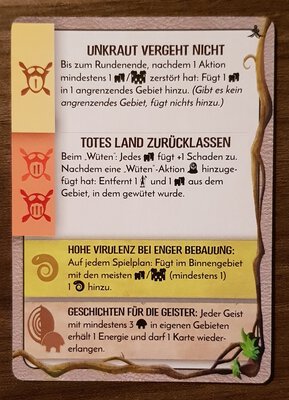 UNKRAUT VERGEHT NICHT
Bis zum Rundenende, nachdem 1 Aktion
mindestens 1 / zerstört hat: Fügt 1
in 1 angrenzendes Gebiet hinzu. (Gibt es kein
angrenzendes Gebiet, fügt nichts hinzu.)
I
TOTES LAND ZURÜCKLASSEN
Beim „Wüten“: Jedes fügt +1 Schaden zu.
Nachdem eine „Wüten“-Aktion hinzuge-
fügt hat: Entfernt 1 und 1 aus dem
Gebiet, in dem gewütet wurde.
II
III
HOHE VIRULENZ BEI ENGER BEBAUUNG:
Auf jedem Spielplan: Fügt im Binnengebiet
mit den meisten / (mindestens 1)
1 hinzu.
GESCHICHTEN FÜR DIE GEISTER: Jeder Geist
mit mindestens 3 in eigenen Gebieten
erhält 1 Energie und darf 1 Karte wieder-
erlangen.